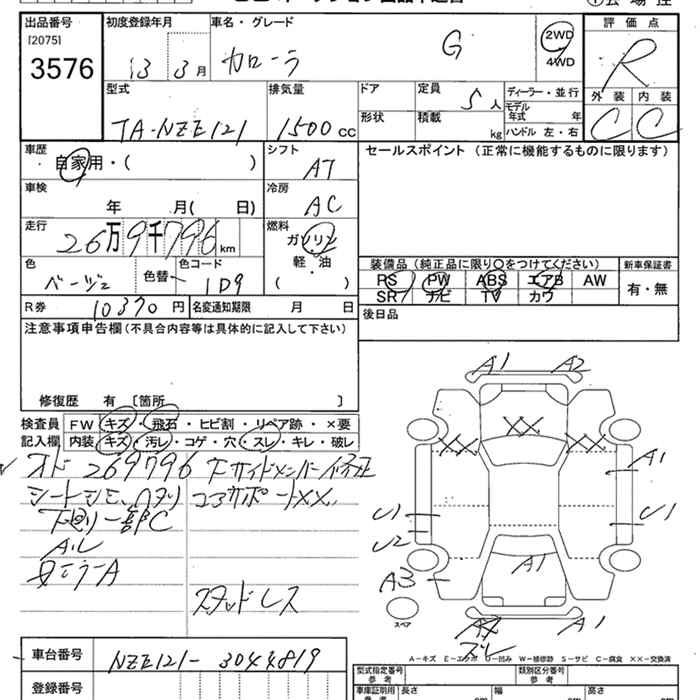 出品番号 初度登録年月 車名・グレード 評価点
[2075] 3576
13 3月 カローラ G 2WD 4WD R
型式 排気量 ドア 定員 ディーラー・並行 外装 内装
TA-NZE121 1500cc 5人 モデル年式 年 C C
形状 積載 kg ハンドル 左・右
車歴 自家用・( ) シフト AT セールスポイント (正常に機能するものに限ります)
車検 年 月( 日) 冷房 AC
走行 26万9千796km 燃料 ガソリン 軽・油 ( )
色 ベージュ 色替 色コード 1D9
装備品 (純正品に限り○をつけてください) 新車保証書
PS PW ABS エアB AW 有・無
SR ナビ TV カワ
R券 10370円 名変通知期限 月 日 後日品
注意事項申告欄 (不具合内容等は具体的に記入して下さい)
修復歴 有 [箇所 ]
検査員 FW キズ・飛石・ヒビ割・リペア跡・×要
記入欄 内装 キズ・汚レ・コゲ・穴・スレ・キレ・破レ
オド 269796
コアサポートXX
シートシミ
下廻り一部C
スタッドレス
A1 A2
XX
XX XX
A1
U1 U1
U2
A1
A3
スペア
A1
A-キズ E-エクボ U-凹み W-補修跡 S-サビ C-腐食 XX-交換済
車台番号 NZE121-3044819
型式指定番号 参考 類別区分番号 参考
登録番号
車庫証明用 参考 長さ cm 幅 cm 高さ cm